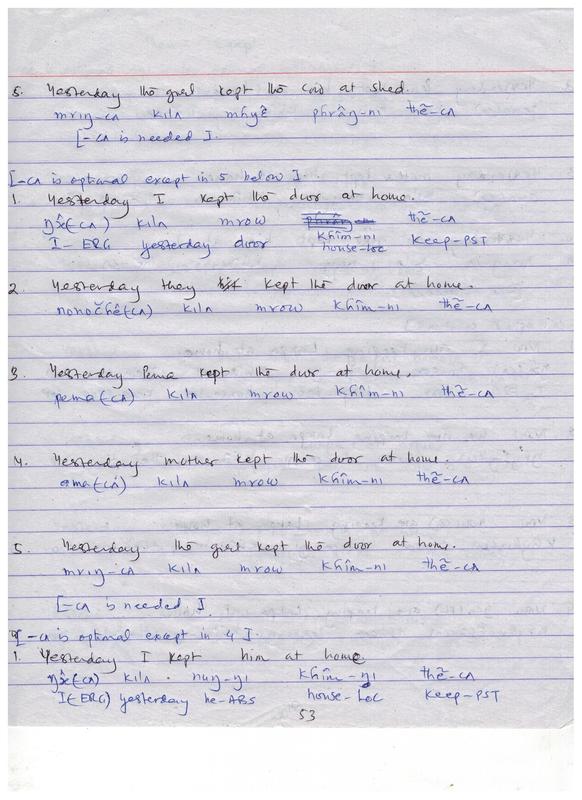 5. Yesterday the girl kept the cow at shed.
mrɪŋ-cʌ kilʌ mhyê phrâŋ-nɪ thẽ-cʌ
[-cʌ is needed].
[-cʌ is optional except in 5 below].
1. Yesterday I kept the door at home.
ŋx̂(cʌ) kilʌ mrow khîm-nɪ thẽ-cʌ
I-ERG yesterday door house-Loc Keep-PST
2. Yesterday they kept the door at home.
nonočhê(cʌ) kilʌ mrow khîm-nɪ thẽ-cʌ
3. Yesterday Pema kept the door at home.
pema(-cʌ) kilʌ mrow khîm-nɪ thẽ-cʌ
4. Yesterday mother kept the door at home.
ama(-cʌ) kilʌ mrow khîm-nɪ thẽ-cʌ
5. Yesterday the girl kept the door at home.
mrɪŋ-cʌ kilʌ mrow khîm-nɪ thẽ-cʌ
[-cʌ is needed].
[-cʌ is optional except in 4].
1. Yesterday I kept him at home
ŋx̂(cʌ) kilʌ. khîm-ŋɪ thẽ-cʌ
I(-ERG) yesterday he-ABS house-Loc Keep-PST
53